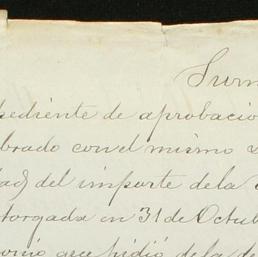 Sum
pediente de aprobacio
brado con el mismo
dad del importe de la
torgada en 31 de Octub
pidió de la de